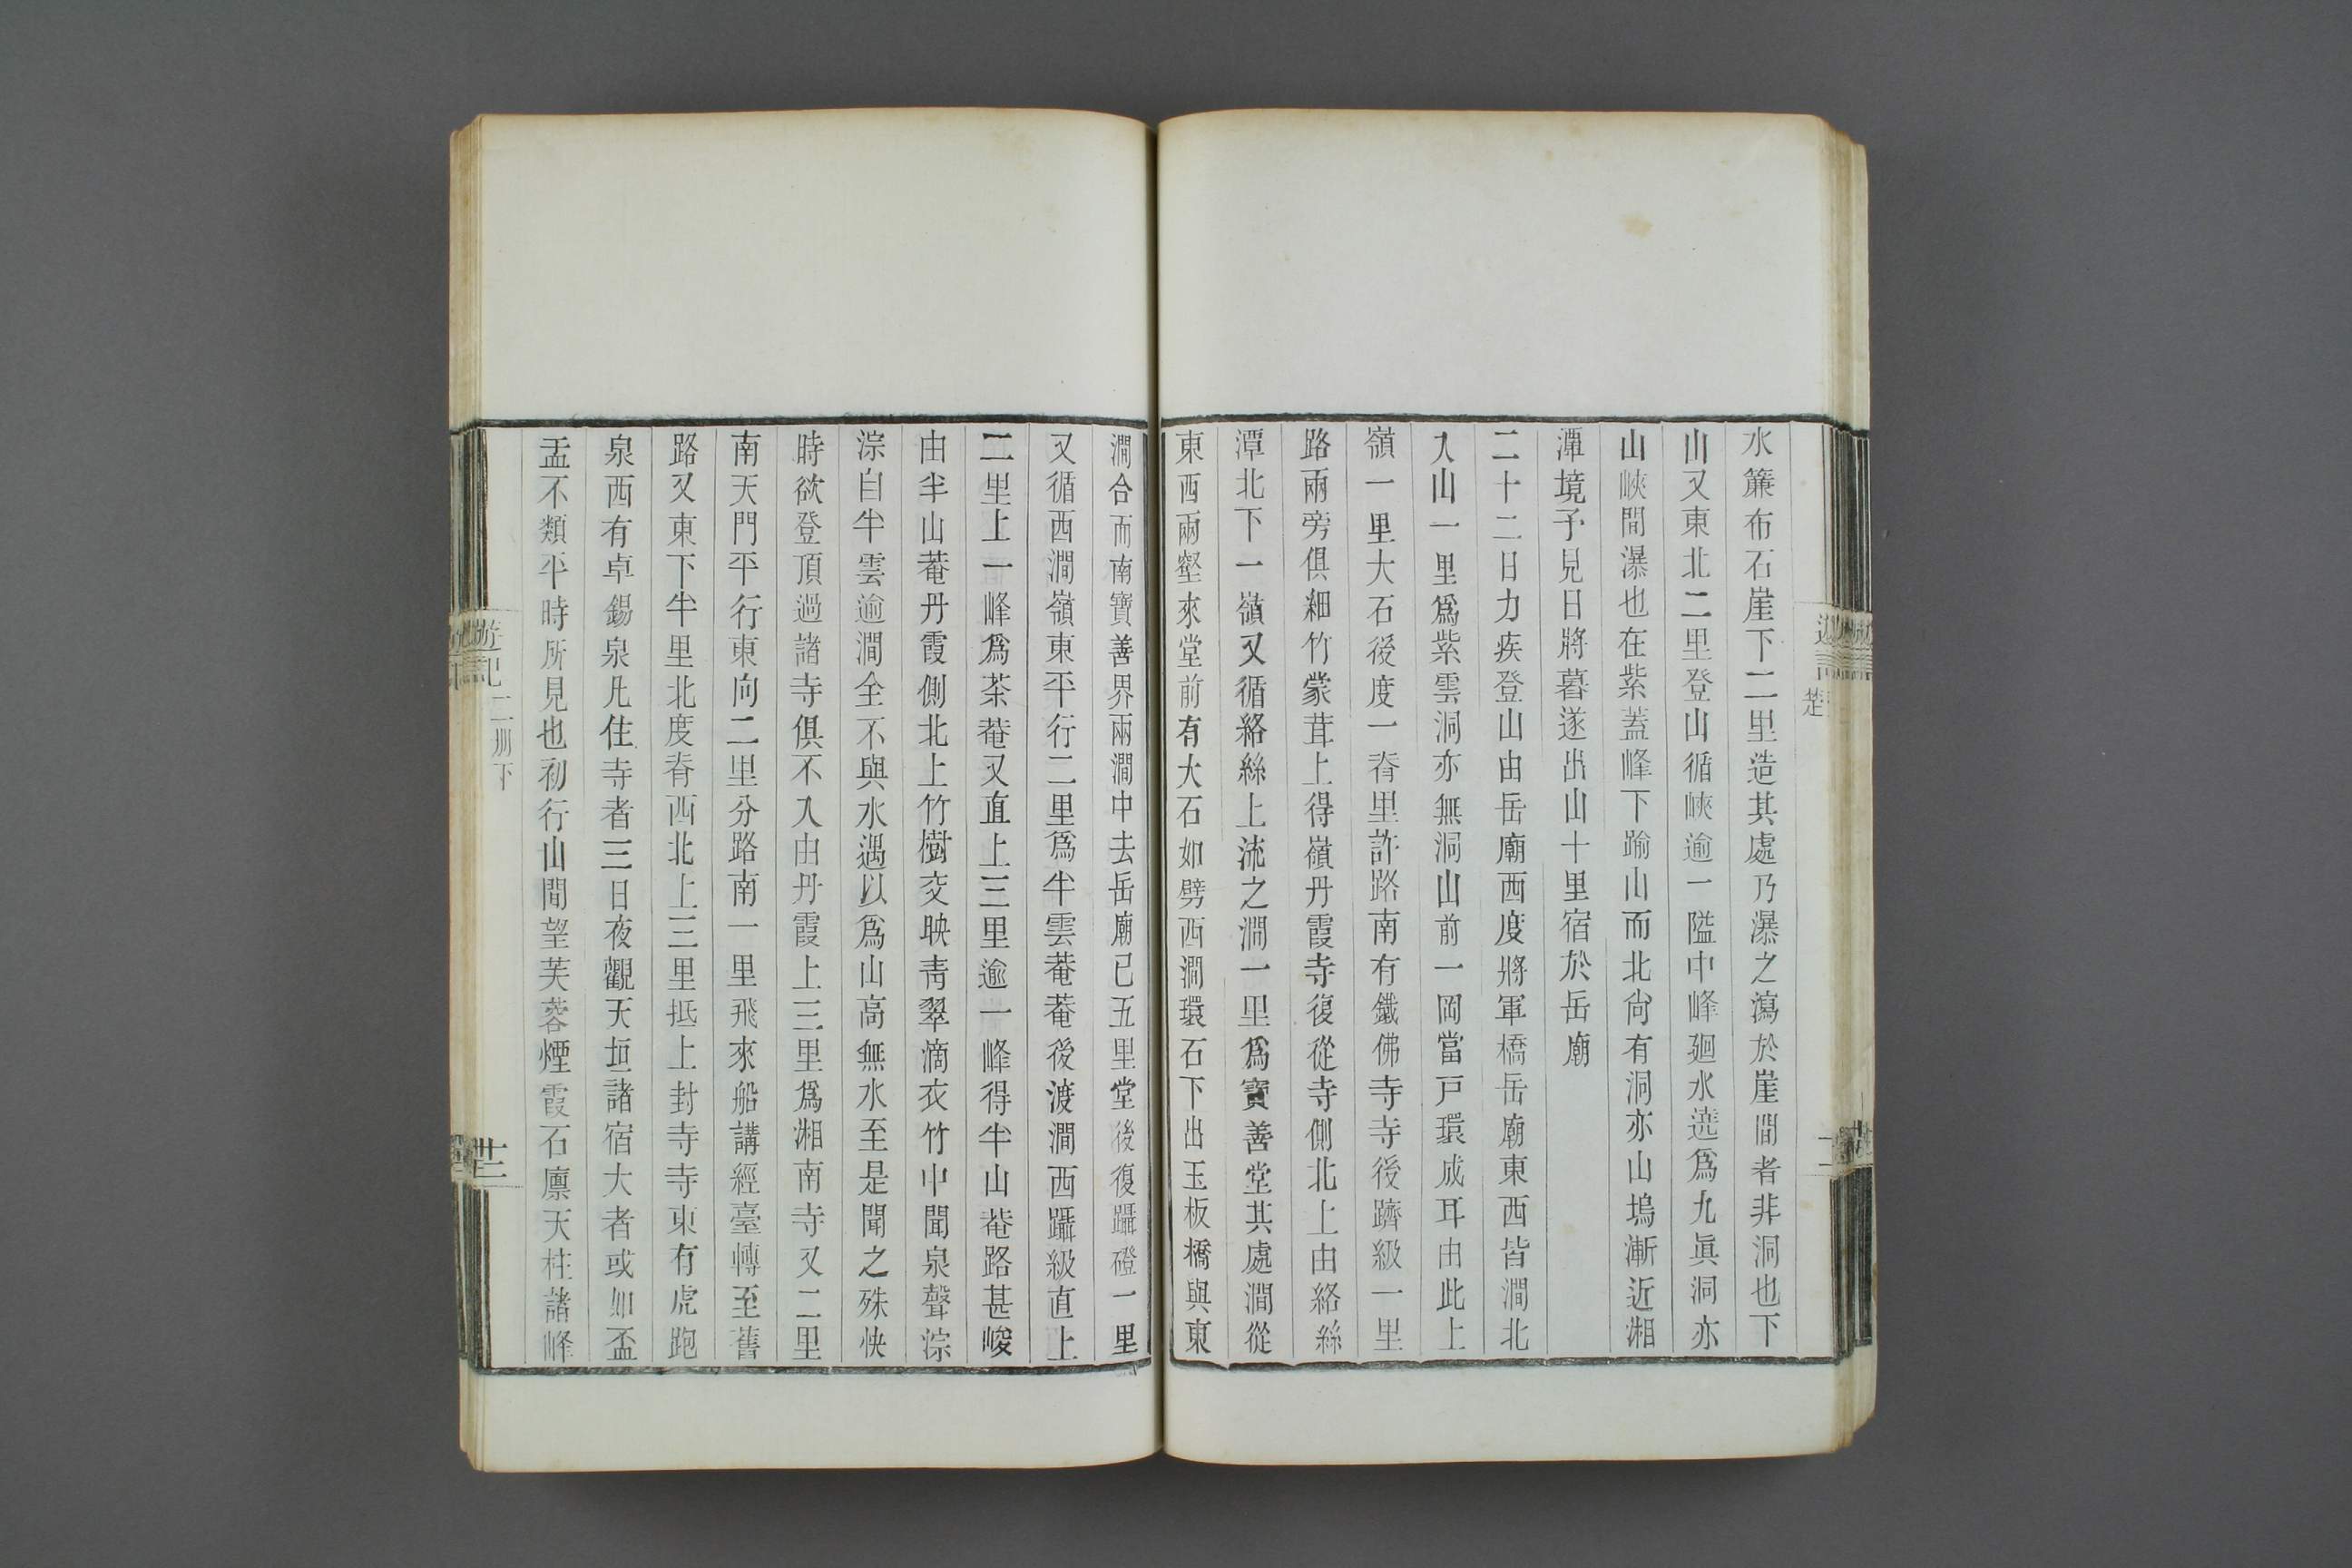 水簾布石崖下二里造其處乃瀑之瀉於崖間者非洞也下
山又東北二里登山循峽逾一隘中峰廻水遶爲九眞洞亦
山峽間瀑也在紫蓋峰下踰山而北尙有洞亦山塢漸近湘
潭境予見日將暮遂出山十里宿於岳廟
二十二日力疾登山由岳廟西度將軍橋岳廟東西皆澗北
入山一里爲紫雲洞亦無洞山前一岡當戸環成耳由此上
嶺一里大石後度一脊里許路南有鐵佛寺寺後躋級一里
路兩旁俱細竹蒙茸上得嶺丹霞寺復從寺側北上由絡絲
潭北下一嶺又循絡絲上流之澗一里爲寶善堂其處澗從
東西兩壑來堂前有大石如劈西澗環石下出玉板橋與東
澗合而南寶善界兩澗中去岳廟已五里堂後復躡磴一里
又循西澗嶺東平行二里爲半雲菴菴後渡澗西躡級直上
二里上一峰爲茶菴又直上三里逾一峰得半山菴路甚峻
由半山菴丹霞側北上竹樹交映靑翠滴衣竹中聞泉聲淙
淙自半雲逾澗全不與水遇以爲山高無水至是聞之殊快
時欲登頂過諸寺俱不入由丹霞上三里爲湘南寺又二里
南天門平行東向二里分路南一里飛來船講經臺轉至舊
路又東下半里北度脊西北上三里抵上封寺寺東有虎跑
泉西有卓錫泉凡住寺者三日夜觀天垣諸宿大者或如盃
盂不類平時所見也初行山間望芙蓉煙霞石廩天柱諸峰
遊記
二册下
廿二